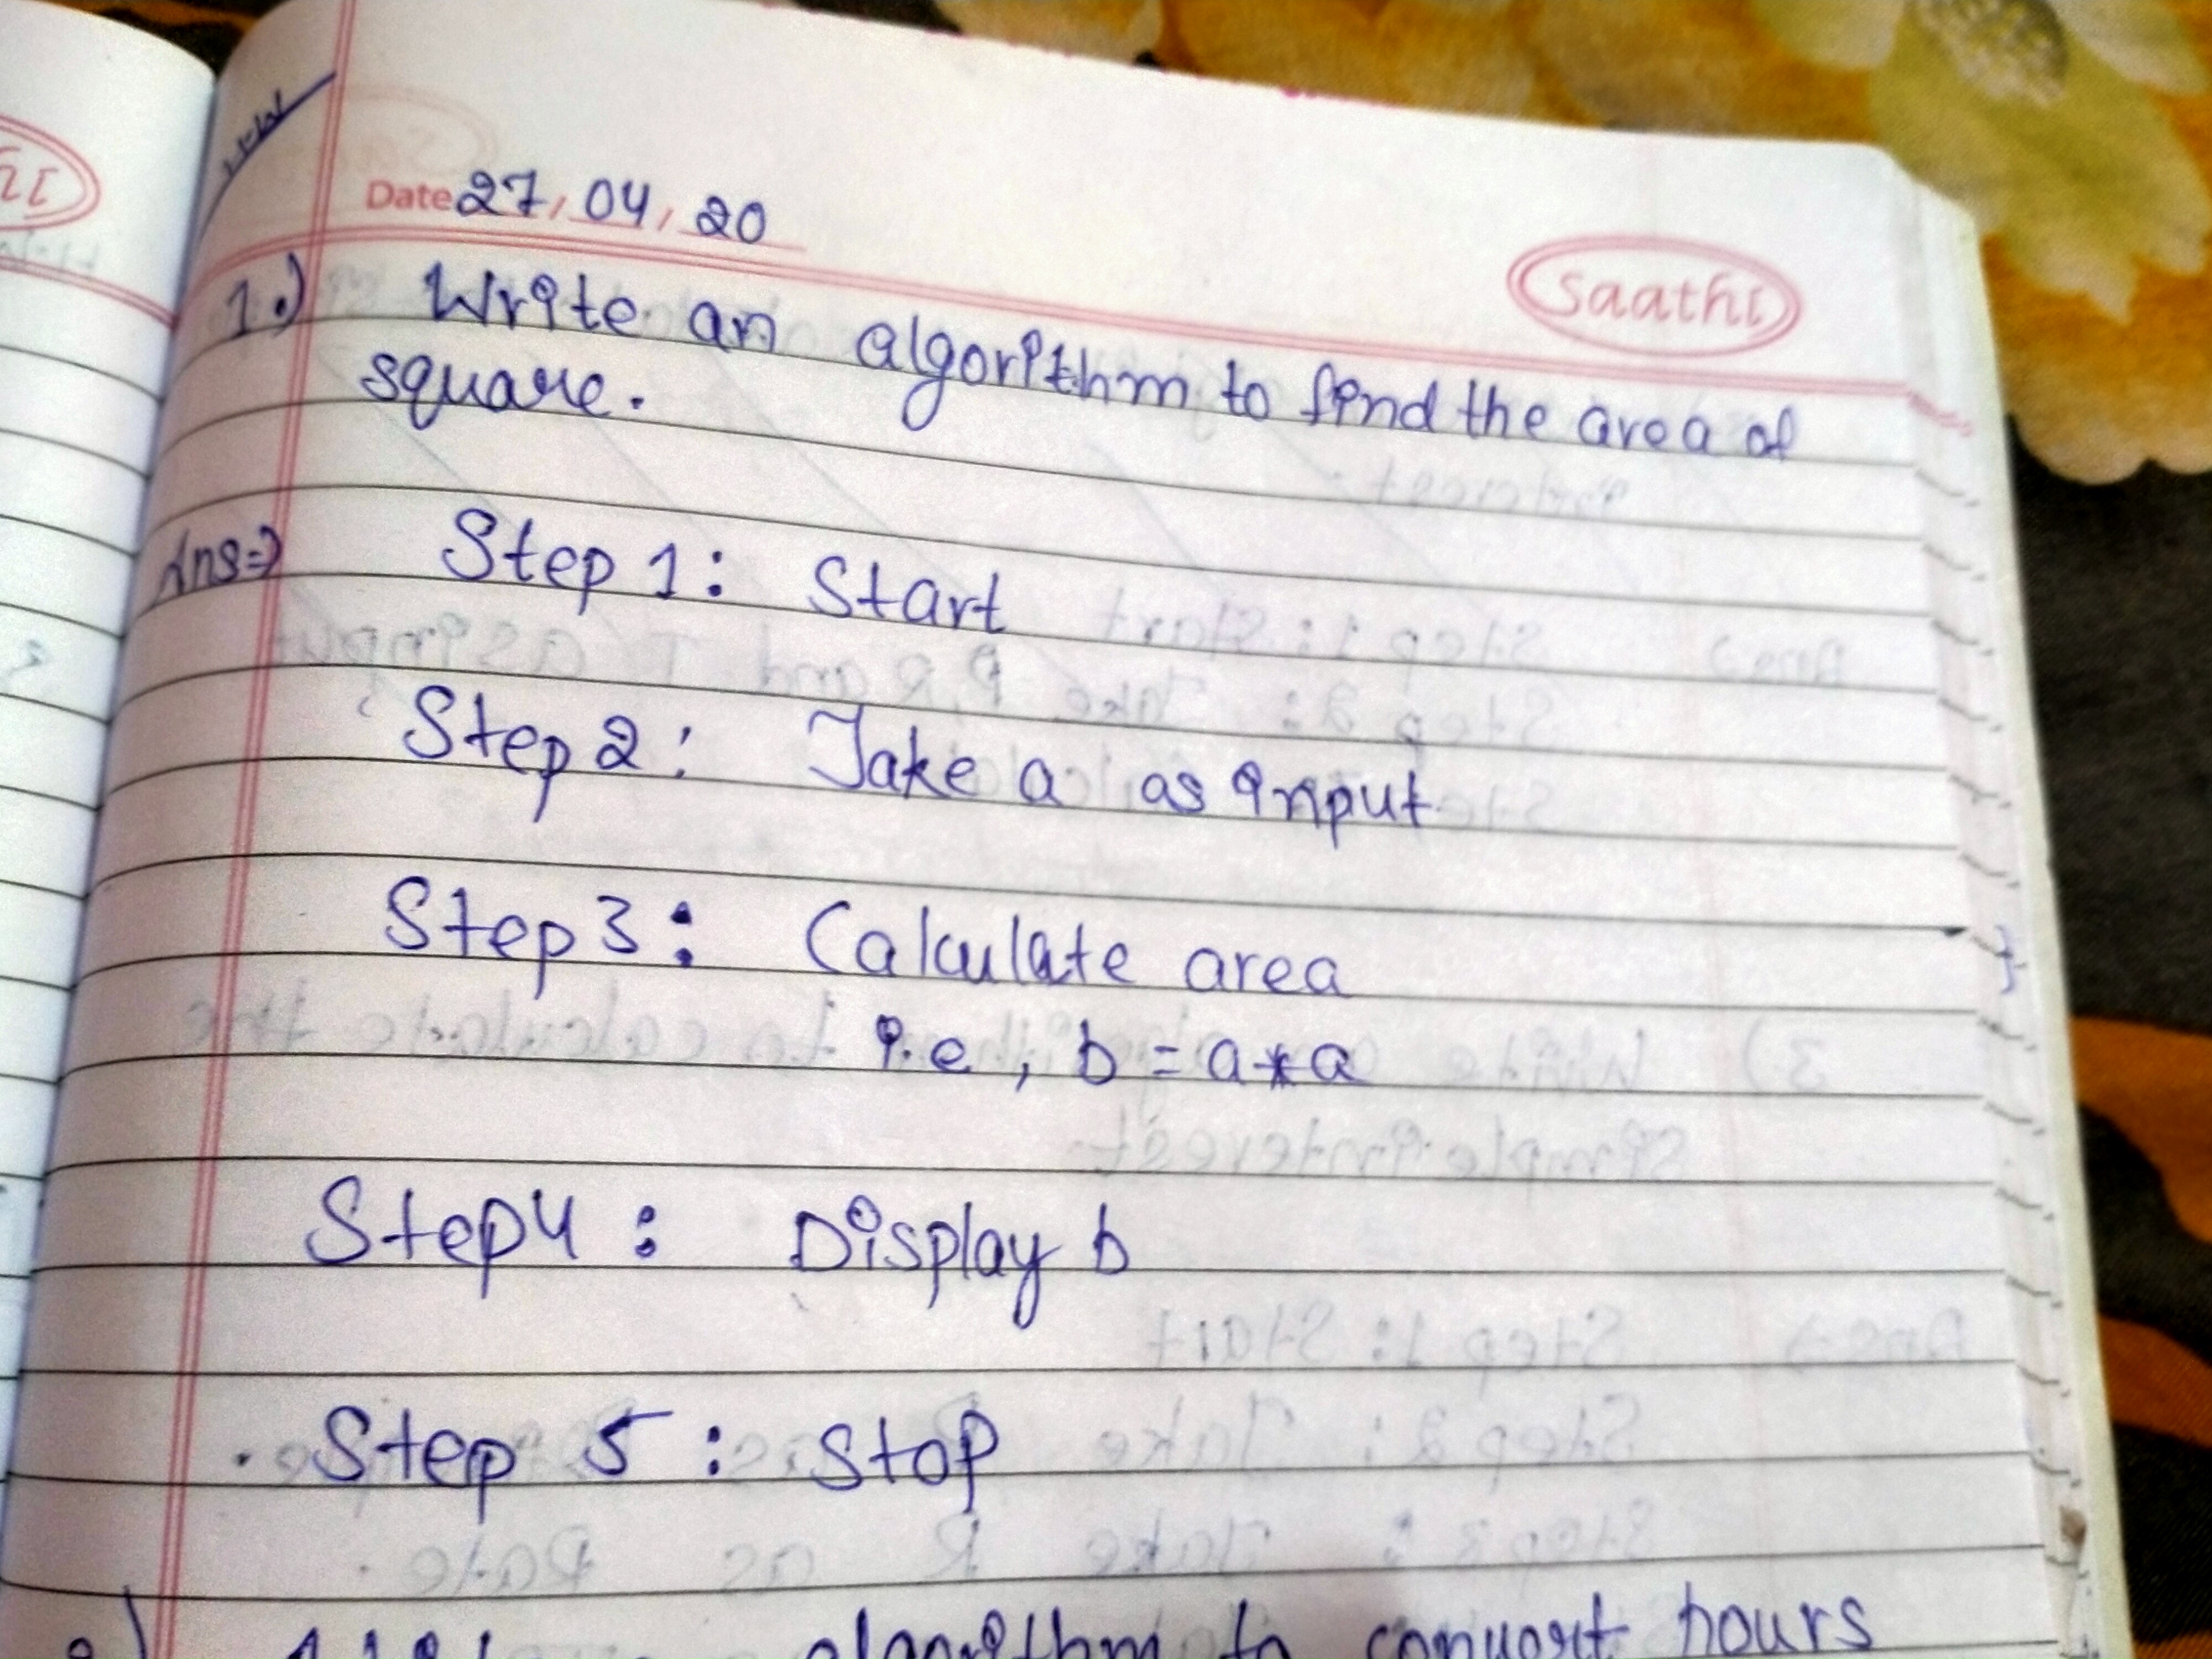 H.W
Date 27/04/20
saathi
1.) Write an algorithm to find the area of
square.
Ans⇒ Step 1: Start
Step 2: Take a as input
Step 3: Calculate area
i.e, b = a*a
Step 4: Display b
Step 5: Stop
algorithm to convert hours